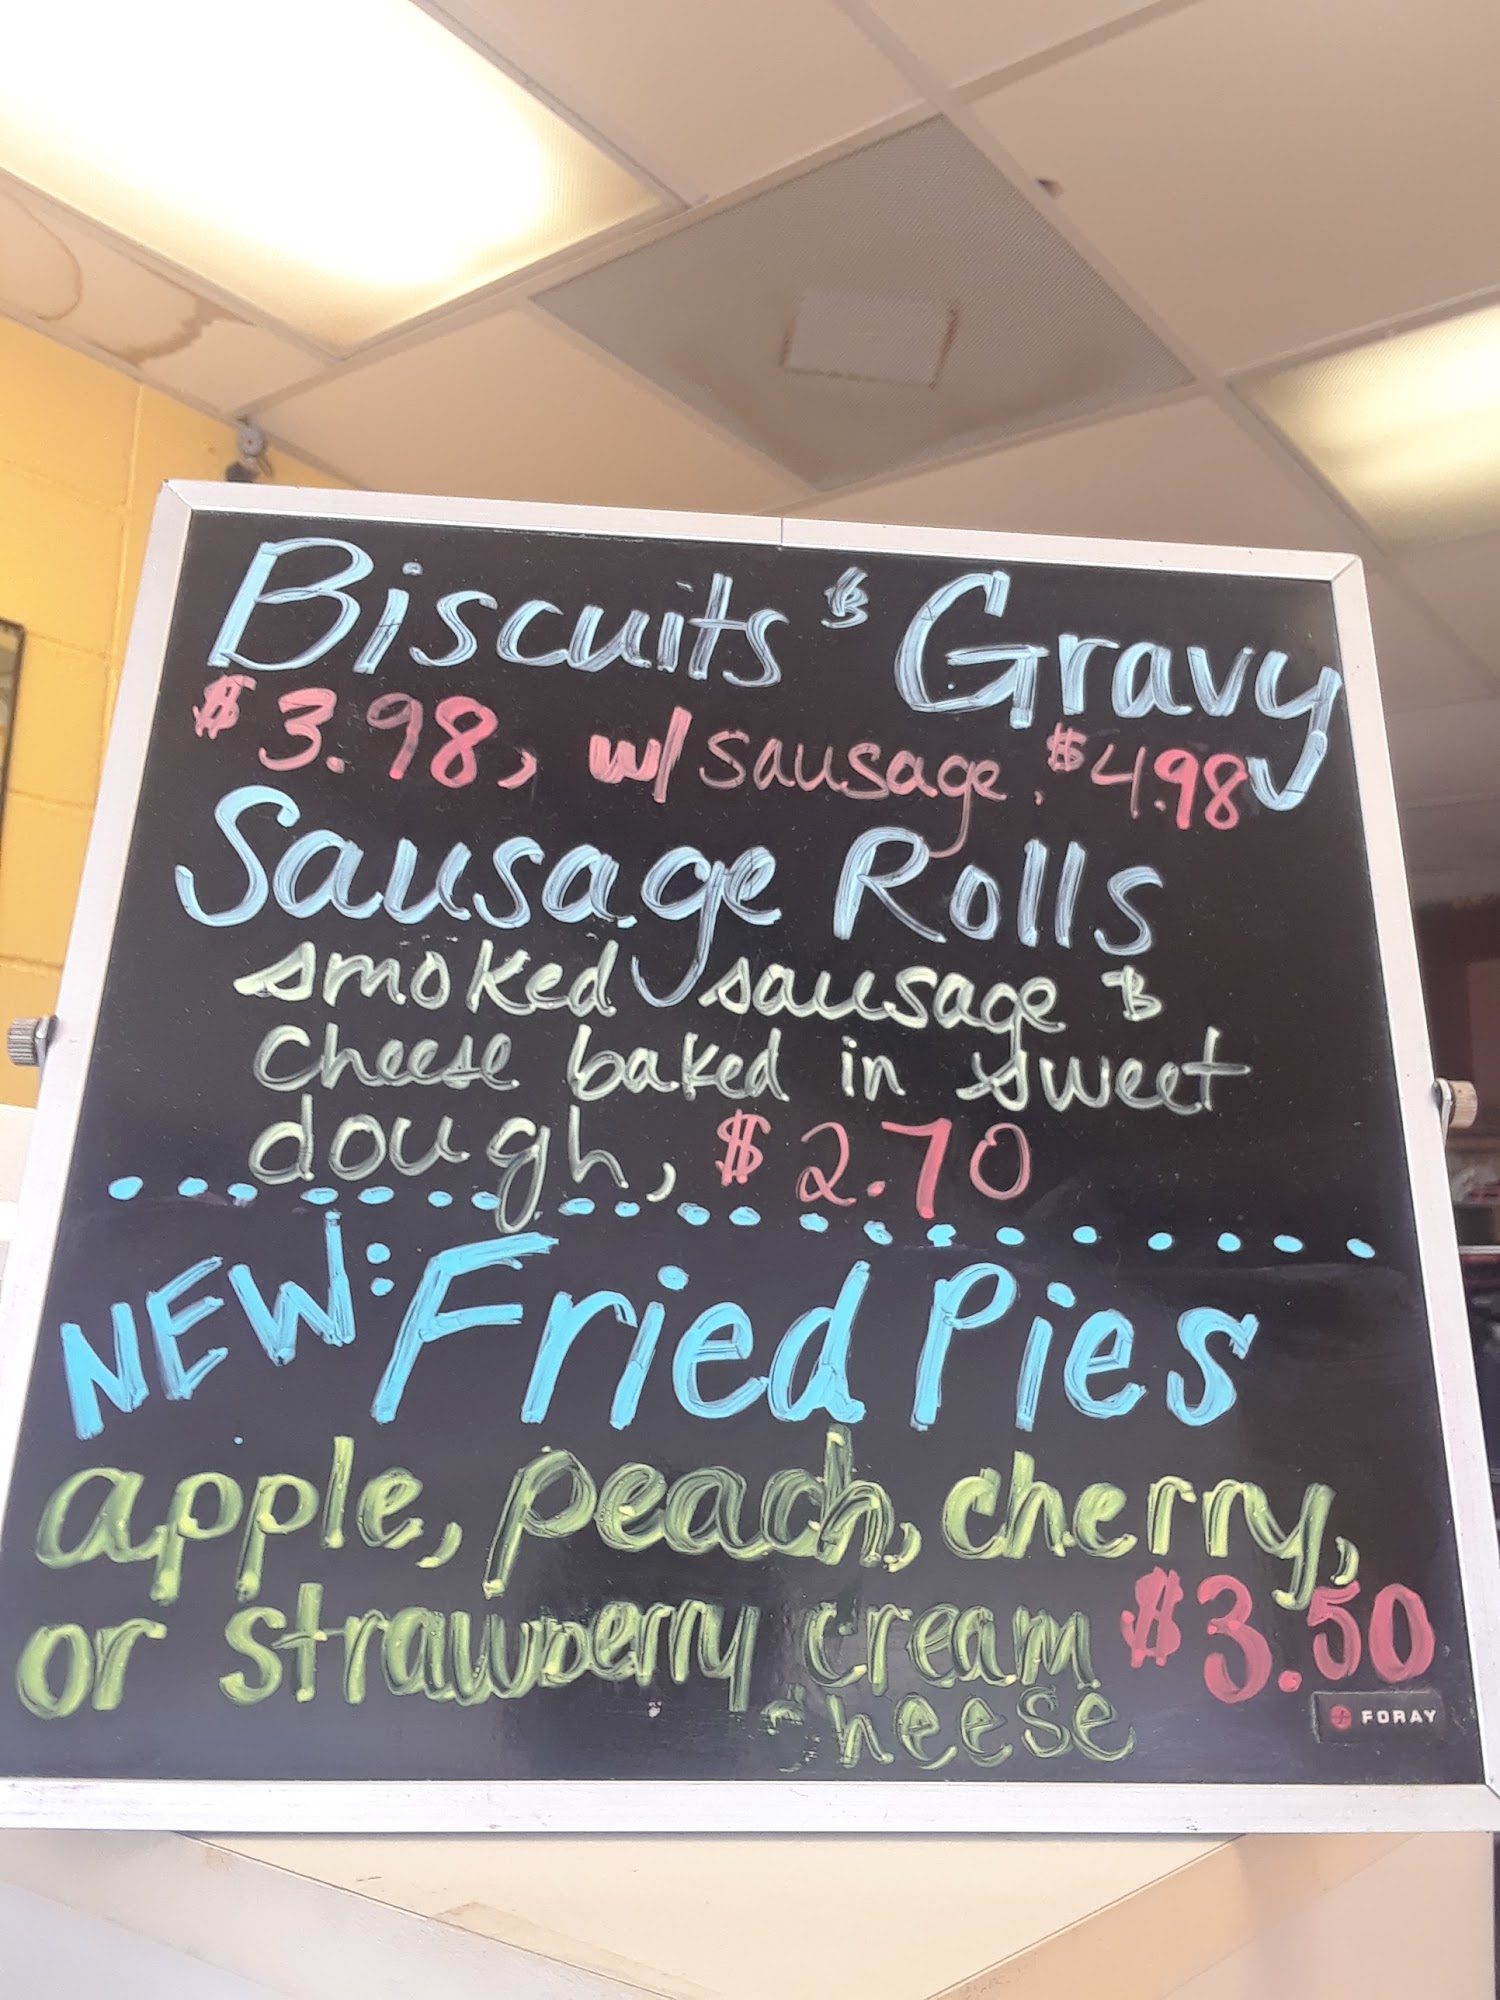 Biscuits & Gravy
$3.98, w/ sausage. $4.98
Sausage Rolls
smoked sausage &
cheese baked in sweet
dough, $2.70
NEW: Fried Pies
apple, peach, cherry,
or strawberry cream $3.50
cheese
FORAY